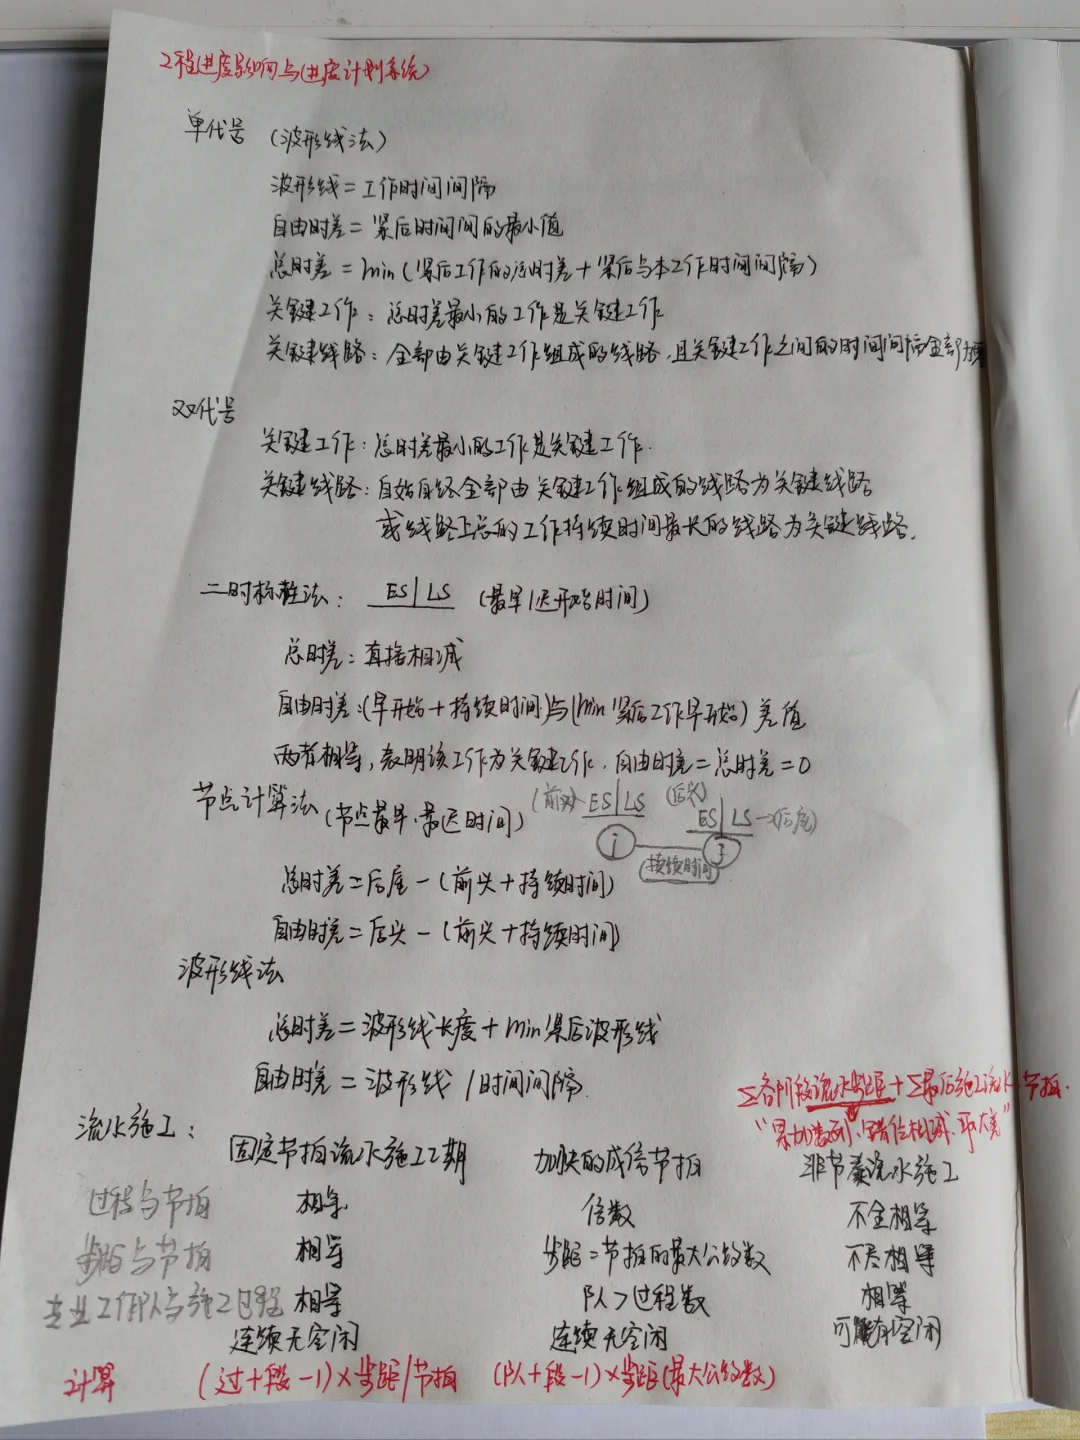 工程进度影响与进度计划系统
单代号 (波形线法)
波形线=工作时间间隔
自由时差=紧后时间间的最小值
总时差=min(紧后工作的总时差+紧后与本工作时间间隔)
关键工作:总时差最小的工作是关键工作
关键线路:全部由关键工作组成的线路,且关键工作之间的时间间隔全部为零
双代号
关键工作:总时差最小的工作是关键工作.
关键线路:自始自终全部由关键工作组成的线路为关键线路
或线路上总的工作持续时间最长的线路为关键线路.
二时标注法: ES|LS (最早/迟开始时间)
总时差:直接相减
自由时差:(早开始+持续时间)与(min紧后工作早开始)差值
两者相等,表明该工作为关键工作.自由时差=总时差=0
节点计算法(节点最早.最迟时间) (前头) ES|LS (后头) ES|LS→(后尾)
i j
持续时间
总时差=后尾-(前头+持续时间)
自由时差=后头-(前头+持续时间)
波形线法
总时差=波形线长度+min紧后波形线
自由时差=波形线/时间间隔
∑各阶段流水步距+∑最后施工流水节拍.
"累加数列、错位相减.取大差"
流水施工: 固定节拍流水施工工期 加快的成倍节拍 非节奏流水施工
过程与节拍 相等 倍数 不全相等
步距与节拍 相等 步距=节拍的最大公约数 不尽相等
专业工作队与施工过程 相等 队>过程数 相等
连续无空闲 连续无空闲 可能有空闲
计算 (过+段-1)×步距/节拍 (队+段-1)×步距(最大公约数)